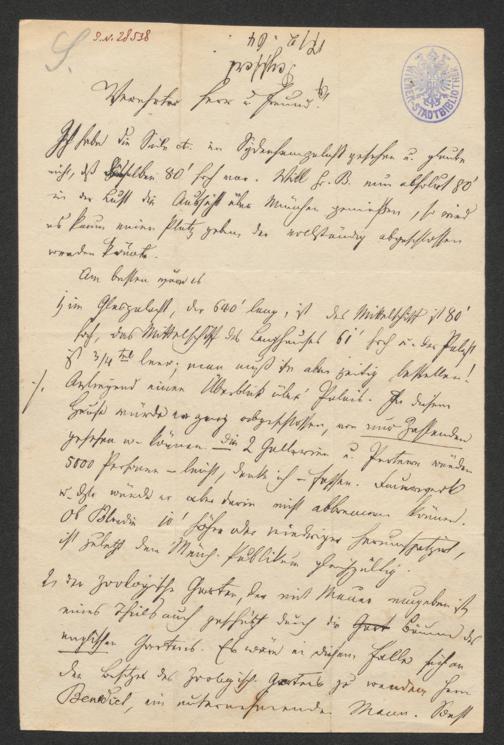 S.
I.N. 28538
WIENER-STADTBIBLIOTHEK
17/2. 64
Verehrter Herr u. Freund!
Ich habe die Seile etc. im Sydenhampalast gesehen u. glaube
nicht, daß dieselben 80' hoch war. Will H. B. nun absolut 80'
in der Luft die Aussicht über München genießen, so wird
es kaum einen Platz geben der vollständig abgeschlossen
werden könnte.
Am besten wäre es
1, im Glaspalast, der 640' lang ist, das Mittelschiff ist 80'
hoch, das Mittelschiff des Langhauses 61' hoch u. der Palast
ist 3/4 tel leer; man muß ihn aber zeitig bestellen!
Anliegend einen Überblick übers Palais. In diesem
Hause würde er ganz abgeschlossen, von nur Zahlenden
gesehen w. können. Die 2 Gallerien u. Parterre würden
5000 Personen – leicht, denke ich – fassen. Feuerwerk
u. dgl. würde er aber darin nicht abbrennen können.
Ob Blondin 10' höher oder niedriger herumspaziert,
ist zuletzt dem Münch. Publikum gleichgültig.
2, der zoologische Garten, der mit Mauer umgeben ist,
eines Theils auch geschützt durch die Bäume des
englischen Gartens. Es wäre in diesem Falle sich an
den Besitzer des zoologisch. Gartens zu wenden, Herrn
Benedict, ein unternehmender Mann. Sonst